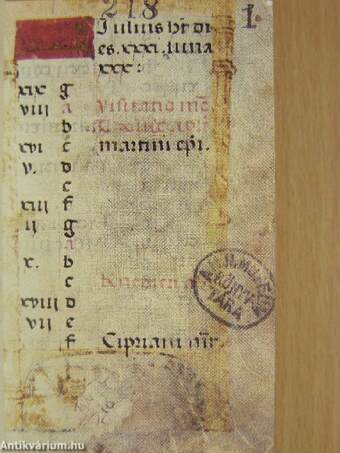 218 1.
Iulius hr̄ di
es. xxxi. luna
xxx:
xix g
viii a Visitatio
b
xvi c martini ep̄i.
v. d
e
xiii f
ii g
a
x. b
c benedicti
xviii d
vii e
f Cipriani mr̄.
N. MUZEUM KÖNYVTÁRA
Antikvárium.hu